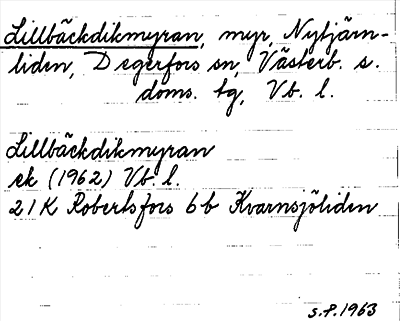 Lillbäckdikmyran, myr, Nytjärn-
liden, Degerfors sn, Västerb. s.
doms. tg, Vb. l.
Lillbäckdikmyran
ek (1962) Vb. l.
21K Robertsfors 6b Kvarnsjöliden
s.P. 1963